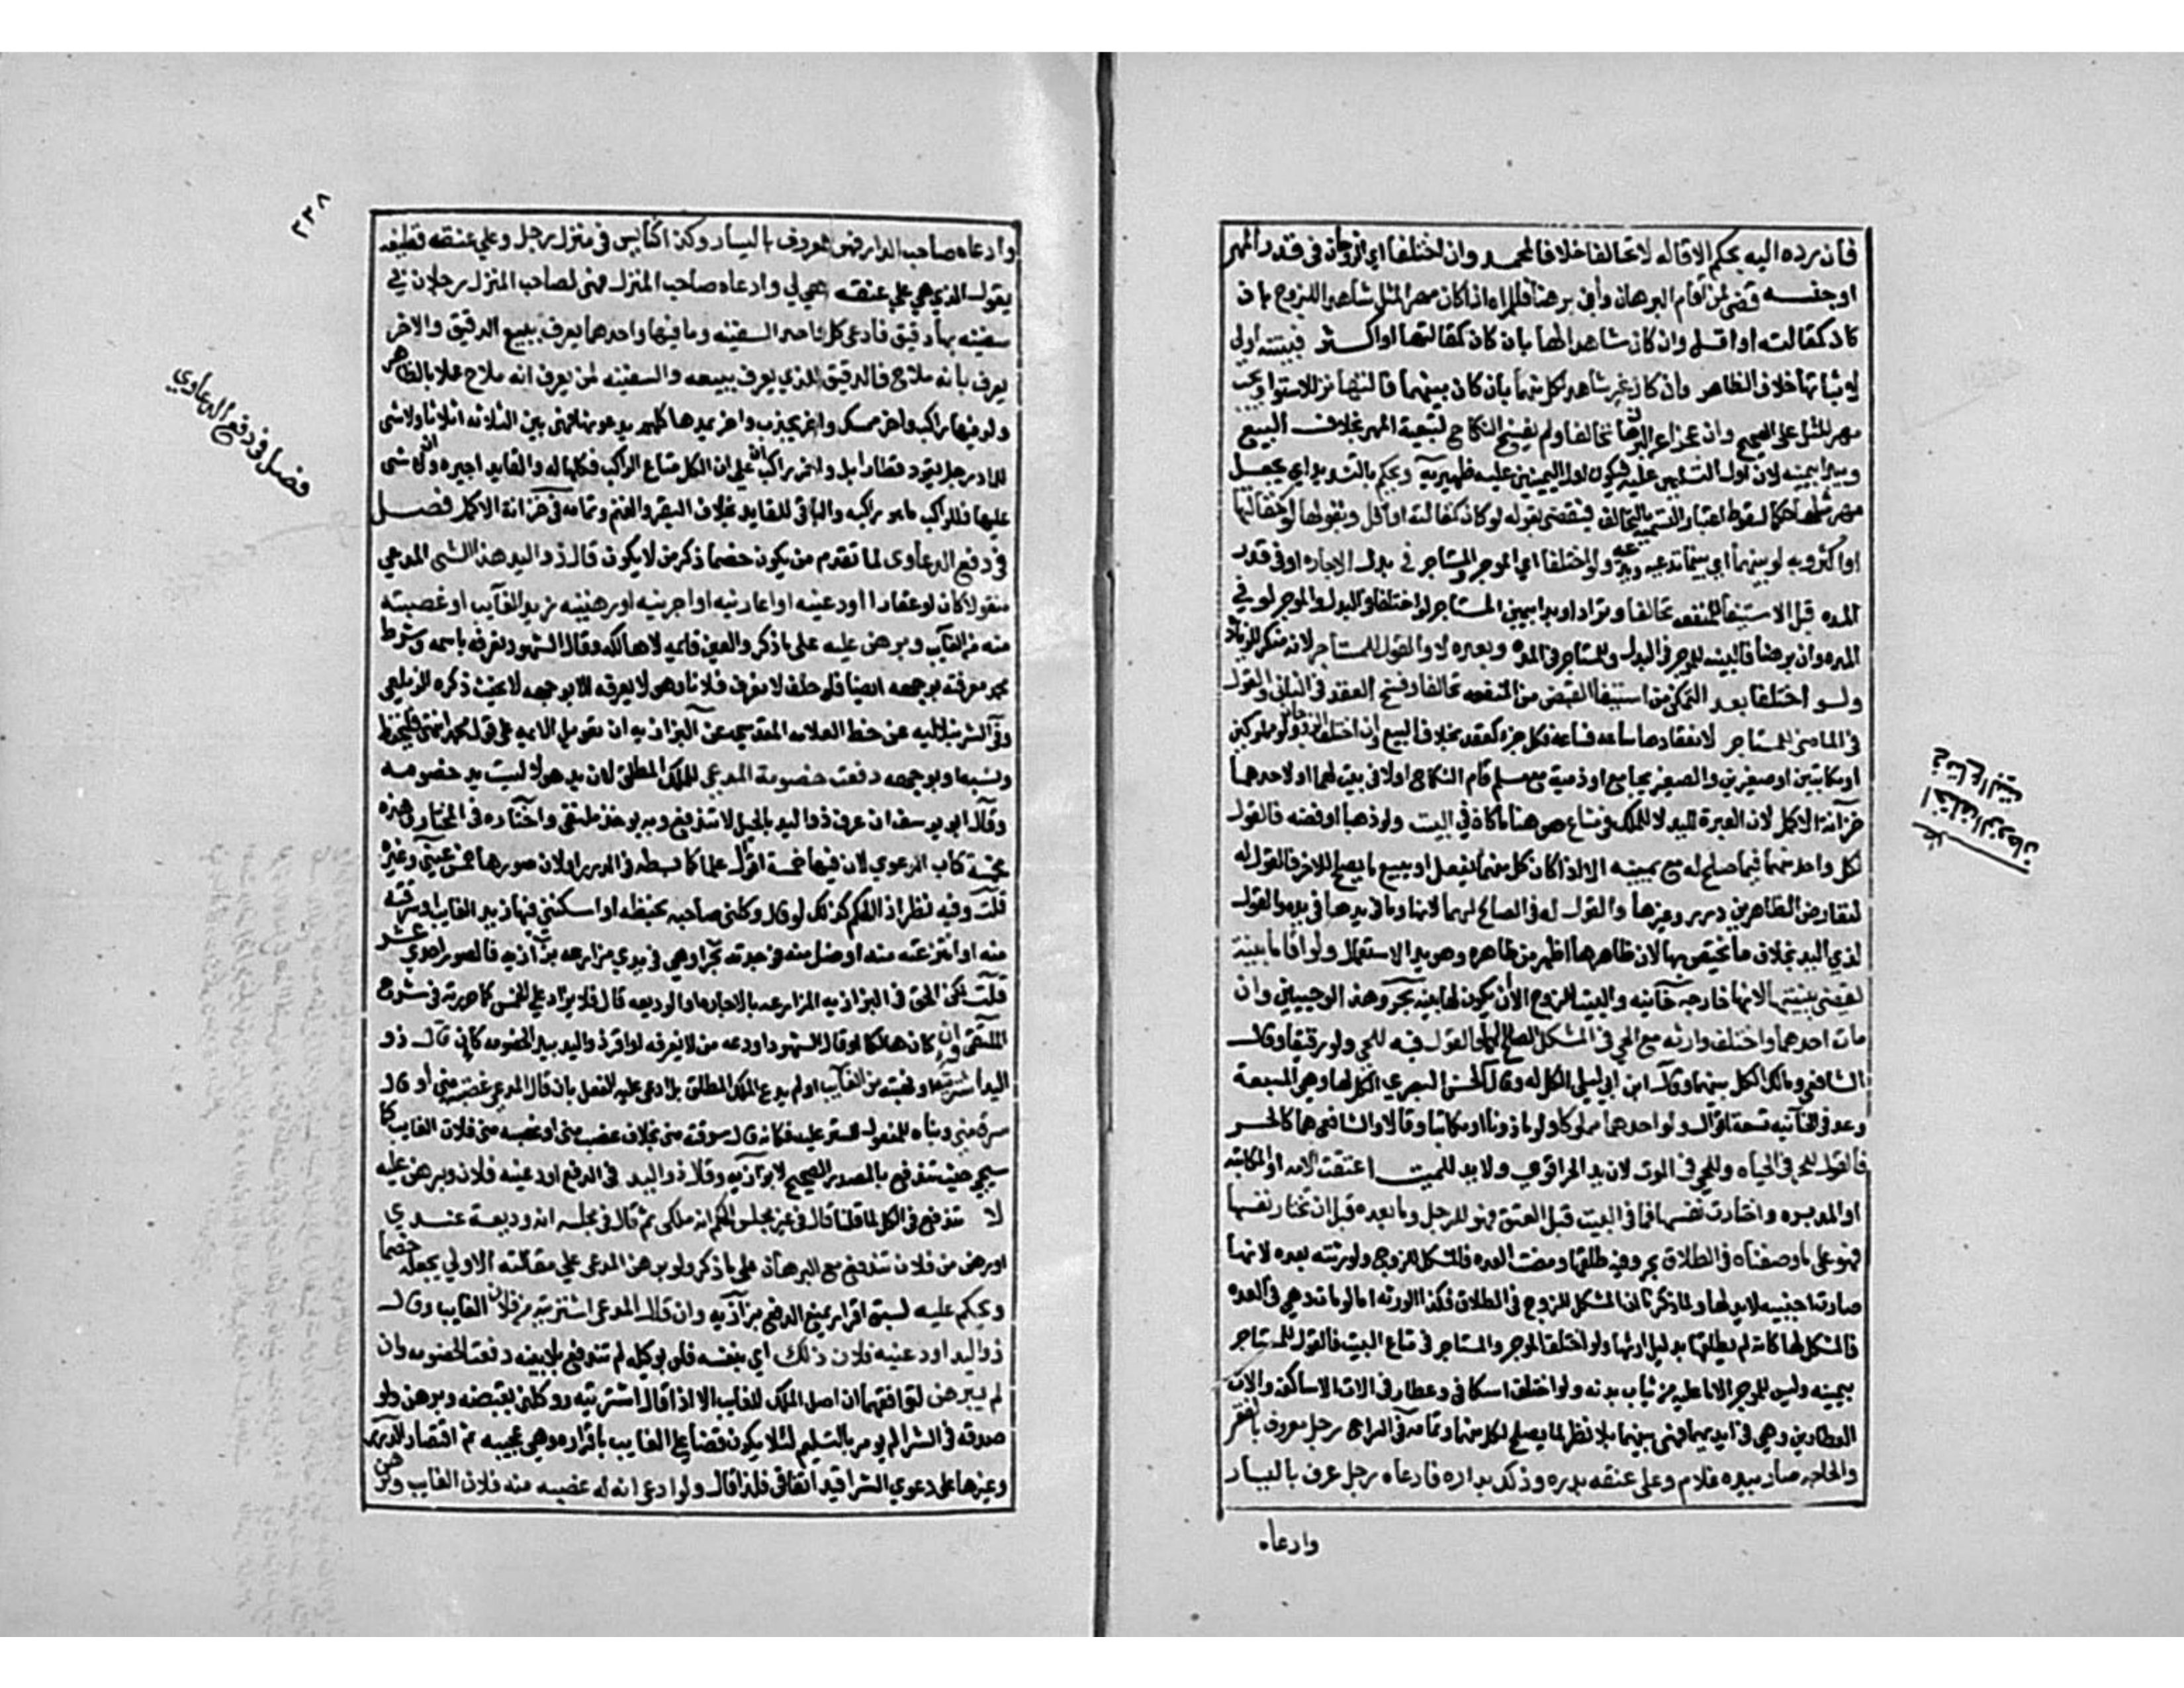 فان رده اليه بحكم الاقاله لا تحالفا خلافا لمحمد وان اختلفا اي الزوجان في قدر المهر
او جنسه قضى لمن اقام البرهان وان برهنا فللمراه اذا كان مهر المثل شاهدا للزوج بان
كان كمقالته او اقل وان كان شاهدا لها بان كان كمقالتها او اكثر فبينته اولى
لاثباتها خلاف الظاهر وان كان غير شاهد لكل منهما بان كان بينهما فالتهاتر للاستوا ويجب
مهر المثل على الصحيح وان عجزا عن البرهان تحالفا ولم يفسخ النكاح لتبعية المهر بخلاف البيع
ويبدا بيمينه لان اول التسليمين عليه فيكون اول اليمينين عليه ظهيريه ويحكم بالتشديد اي يجعل
مهر مثلها حكما لسقوط اعتبار التسمية بالتحالف فيقضى بقوله لو كان كمقالته او اقل وبقولها لو كمقالتها
او اكثر وبه لو بينهما اي بين ما تدعيه ويدعيه ولو اختلفا اي الموجر والمستاجر في بدل الاجاره او في قدر
المده قبل الاستيفا للمنفعه تحالفا وترادا وبدا بيمين المستاجر لو اختلفا في البدل والموجر لو في
المده وان برهنا فالبينه للموجر في البدل وللمستاجر في المده وبعده لا والقول للمستاجر لانه منكر للزيادة
ولو اختلفا بعد التمكن من استيفا البعض من المنفعه تحالفا وفسخ العقد في الباقي والقول
في الماضي للمستاجر لانعقادها ساعه فساعه فكل جزء كعقد بخلاف البيع وان اختلف الزوجان ولو مملوكين
او مكاتبين او صغيرين والصغير يجامع او ذمية مع مسلم قام النكاح اولا في بيت لهما او لاحدهما
خزانة الاكمل لان العبرة لليد لا للملك في متاع هو هنا ما كان في البيت ولو ذهبا او فضه فالقول
لكل واحد منهما فيما صلح له مع يمينه الا اذا كان كل منهما يفعل او يبيع ما يصلح للاخر فالقول له
لتعارض الظاهرين درر وغيرها والقول له في الصالح لهما لانها وما في يدها في يده والقول
لذي اليد بخلاف ما يختص بها لان ظاهرها اظهر من ظاهره وهو يد الاستعمال ولو اقاما بينة
يقضي ببينتها لانها خارجه خانيه والبيت للزوج الا ان يكون لها بينه بحر وهذا لو حيين وان
مات احدهما واختلف وارثه مع الحي في المشكل الصالح لهما فالقول فيه للحي ولو رقيقا وقال
الشافعي ومالك الكل بينهما وقال ابن ابي ليلى الكل له وقال الحسن البصري الكل لها وهي المسبعة
وعد في الخانيه تسعة اقوال ولو احدهما مملوكا ولو ماذونا او مكاتبا وقالا والشافعي هما كالحر
فالقول للحر في الحياه وللحي في الموت لان يد الحر اقوى ولا يد للميت اعتقت الامه او المكاتبه
او المدبره واختارت نفسها فما في البيت قبل العتق فهو للرجل وما بعده قبل ان تختار نفسها
فهو على ما وصفناه في الطلاق بحر وفيه طلقها ومضت العده فالمشكل للزوج ولورثته بعده لانها
صارت اجنبيه لا يد لها ولما ذكرنا ان المشكل للزوج في الطلاق فكذا الورثه اما لو مات وهي في العده
فالمشكل لها كانه لم يطلقها بدليل ارثها ولو اختلف الموجر والمستاجر في متاع البيت فالقول للمستاجر
بيمينه وليس للموجر الا ما عليه من ثياب بدنه ولو اختلف اسكافي وعطار في الات الاساكفه والات
العطارين وهي في ايديهما فهي بينهما بلا نظر لما يصلح لكل منهما وتمامه في السراج رجل معروف بالفقر
والحاجه صار بيده غلام وعلى عنقه بدره وذلك بداره فادعاه رجل عرف باليسار
وادعاه
اختلف الزوجان
في متاع البيت
٢٣٨
وادعاه صاحب الدار فهي لمعروف باليسار وكذا كناس في منزل رجل وعلي عنقه قطيفه
يقول الذي هي علي عنقه هي لي وادعاه صاحب المنزل فهي لصاحب المنزل رجلان في
سفينه بها دقيق فادعى كل واحد السفينه وما فيها واحدهما يعرف ببيع الدقيق والاخر
يعرف بانه ملاح فالدقيق للذي يعرف ببيعه والسفينه لمن يعرف انه ملاح عملا بالظاهر
ولو فيها راكب واخر ممسك واخر يجذب واخر يمدها كلهم يدعونها فهي بين الثلاثه اثلاثا ولا شي
للماد رجل يقود قطار ابل واخر راكب ان علي الكل متاع الراكب فكلها له والقايد اجيره وان لا شي
عليها فللراكب ما هو راكبه والباقي للقايد بخلاف البقر والغنم وتمامه في خزانة الاكمل فصل
في دفع الدعاوى لما تقدم من يكون خصما ذكر من لا يكون قال ذو اليد هذا الشي المدعي
منقولا كان او عقارا اودعنيه او اعارنيه او اجرنيه او رهنيه زيد الغايب او غصبته
منه من الغايب وبرهن عليه على ما ذكر والعين قايمه لا هالكه وقال الشهود نعرفه باسمه وشرط
محمد معرفته بوجهه ايضا فلو حلف لا يعرف فلانا وهو لا يعرفه الا بوجهه لا يحنث ذكره الزيلعي
وفي الشرنبلاليه عن خط العلامه المقدسي عن البزازيه ان تعويل الايمه على قول محمد انتهى فليحفظ
ونسبه او بوجهه دفعت خصومة المدعي للملك المطلق لان يد هولا ليست يد خصومه
وقال ابو يوسف ان عرف ذو اليد بالحيل لا تندفع وبه يوخذ ملتقى واختاره في المختار وهذه
مخمسة كتاب الدعوي لان فيها خمسة اقوال علما كما بسط في الدرر او لان صورها خمس عيني وغيره
قلت وفيه نظر اذ الحكم كذلك لو قال وكلني صاحبه بحفظه او اسكنني فيها زيد الغايب او سرقته
منه او انتزعته منه او ضل منه فوجدته بحر او هي في يدي مزارعه بزازيه فالصور احدي عشر
قلت لكن الحق في البزازيه المزارعه بالاجاره او الوديعه قال فلا يزاد علي الخمس كما حررته في شرح
الملتقى وان كان هالكا او قال الشهود اودعه من لا نعرفه او اقر ذو اليد بيد الخصومه كان قال ذو
اليد اشتريته او اتهبته من الغايب او لم يدع الملك المطلق بل ادعى عليه الفعل بان قال المدعي غصبته مني او قال
سرق مني وبناه للمفعول للستر عليه فكانه قال سرقته مني بخلاف غصب مني او غصبه مني فلان الغايب كما
سيجي حيث تندفع بالصدر الصحيح لا بزازيه وقال ذو اليد في الدفع اودعنيه فلان وبرهن عليه
لا تندفع في الكل لما قلنا قال في غير مجلس الحكم انه ملكي ثم قال في مجلسه انه وديعة عندي
او رهن من فلان تندفع مع البرهان على ما ذكر ولو برهن المدعى علي مقالته الاولي يجعله خصما
ويحكم عليه لسبق اقرار يمنع الدفع بزازيه وان قال المدعي اشتريته من فلان الغايب وقال
ذو اليد اودعنيه فلان ذلك اي بنفسه فلو بوكيله لم تندفع بلا بينه دفعت الخصومه وان
لم يبرهن لتوافقهما ان اصل الملك للغايب الا اذا قال اشتريته ووكلني بقبضه وبرهن ولو
صدقه في الشرا لم يومر بالتسليم لئلا يكون قضا علي الغايب باقراره وهي عجيبه ثم اقتصار الدرر
وغيرها على دعوي الشرا قيد اتفاقي فلذا قال ولو ادعى انه له غصبه منه فلان الغايب وبرهن
فصل في دفع الدعاوي